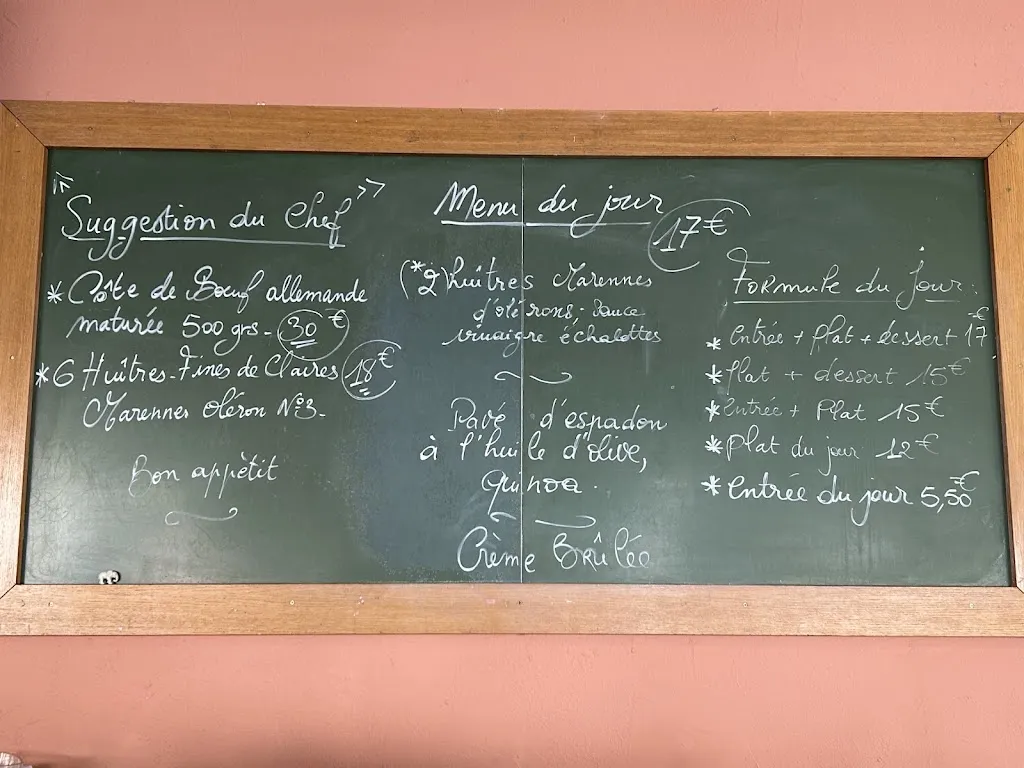 « Suggestion du Chef »
* Côte de Boeuf allemande
maturée 500 grs - 30 €
* 6 Huîtres - Fines de Claires 18 €
Marennes Oléron N°3 -
Bon appétit
Menu du jour
17 €
(*2) huîtres Marennes
d'olérons - Sauce
vinaigre échalottes
Pavé d'espadon
à l'huile d'olive,
Quinoa .
Crème Brûlée
Formule du Jour :
* entrée + plat + dessert 17 €
* plat + dessert 15 €
* entrée + Plat 15 €
* plat du jour 12 €
* entrée du jour 5,50 €